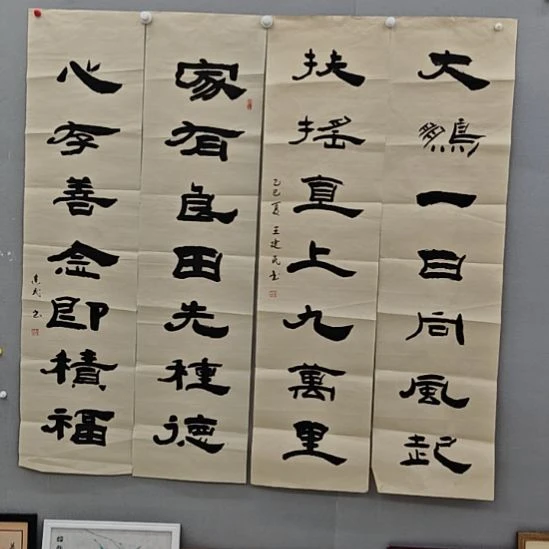 大鵬一日同風起
扶搖直上九萬里
乙巳夏王建民书
家有良田先種德
心存善念即積福
建民书